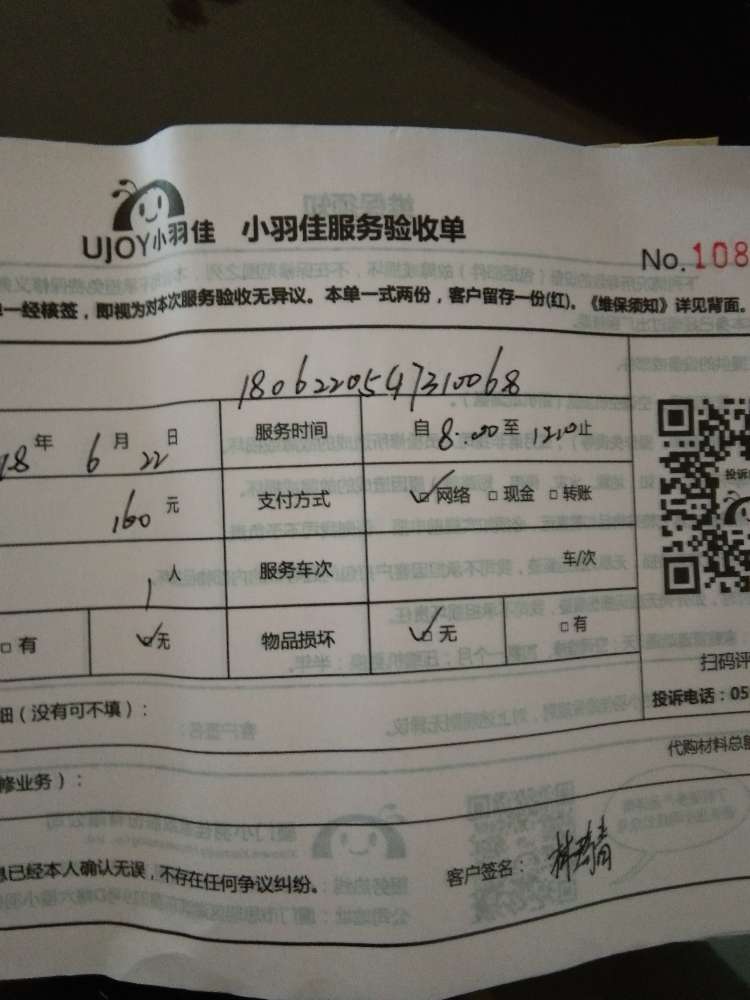 UJOY小羽佳 小羽佳服务验收单
No.108
单一经核签，即视为对本次服务验收无异议。本单一式两份，客户留存一份(红)。《维保须知》详见背面。
1806220547310068
18年 6月 22日 服务时间 自 8:00 至 12:10 止
160元 支付方式 网络 现金 转账
1人 服务车次 车/次
有 无 物品损坏 无 有
投诉
扫码评
细（没有可不填）：
投诉电话：05
代购材料总额
修业务）：
息已经本人确认无误，不存在任何争议纠纷。
客户签名：